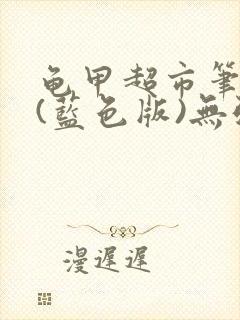 龟甲超市筆
(藍色版)無
漫遲遲